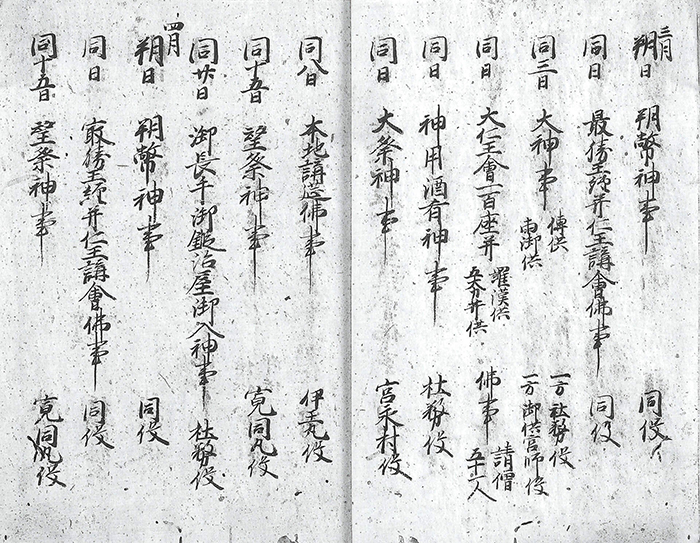 三月
朔日 朔幣神事 同役
同日 最勝王経并仁王講會佛事 同役
同三日 大神事 傳供 両御供 一方社務役 一方御供宮師役
同日 大仁王會一百座并 羅漢供 五大力井供 佛事 請僧 五十二人
同日 神用酒有神事 社務役
同日 大祭神事 宮永村役
同八日 本地講造佛事 伊王丸役
同十五日 望祭神事 寛同丸役
同廿日 御長手御鍛冶屋御入神事 社務役
四月
朔日 朔幣神事 同役
同日 最勝王経并仁王講會佛事 同役
同十五日 望祭神事 寛同丸役